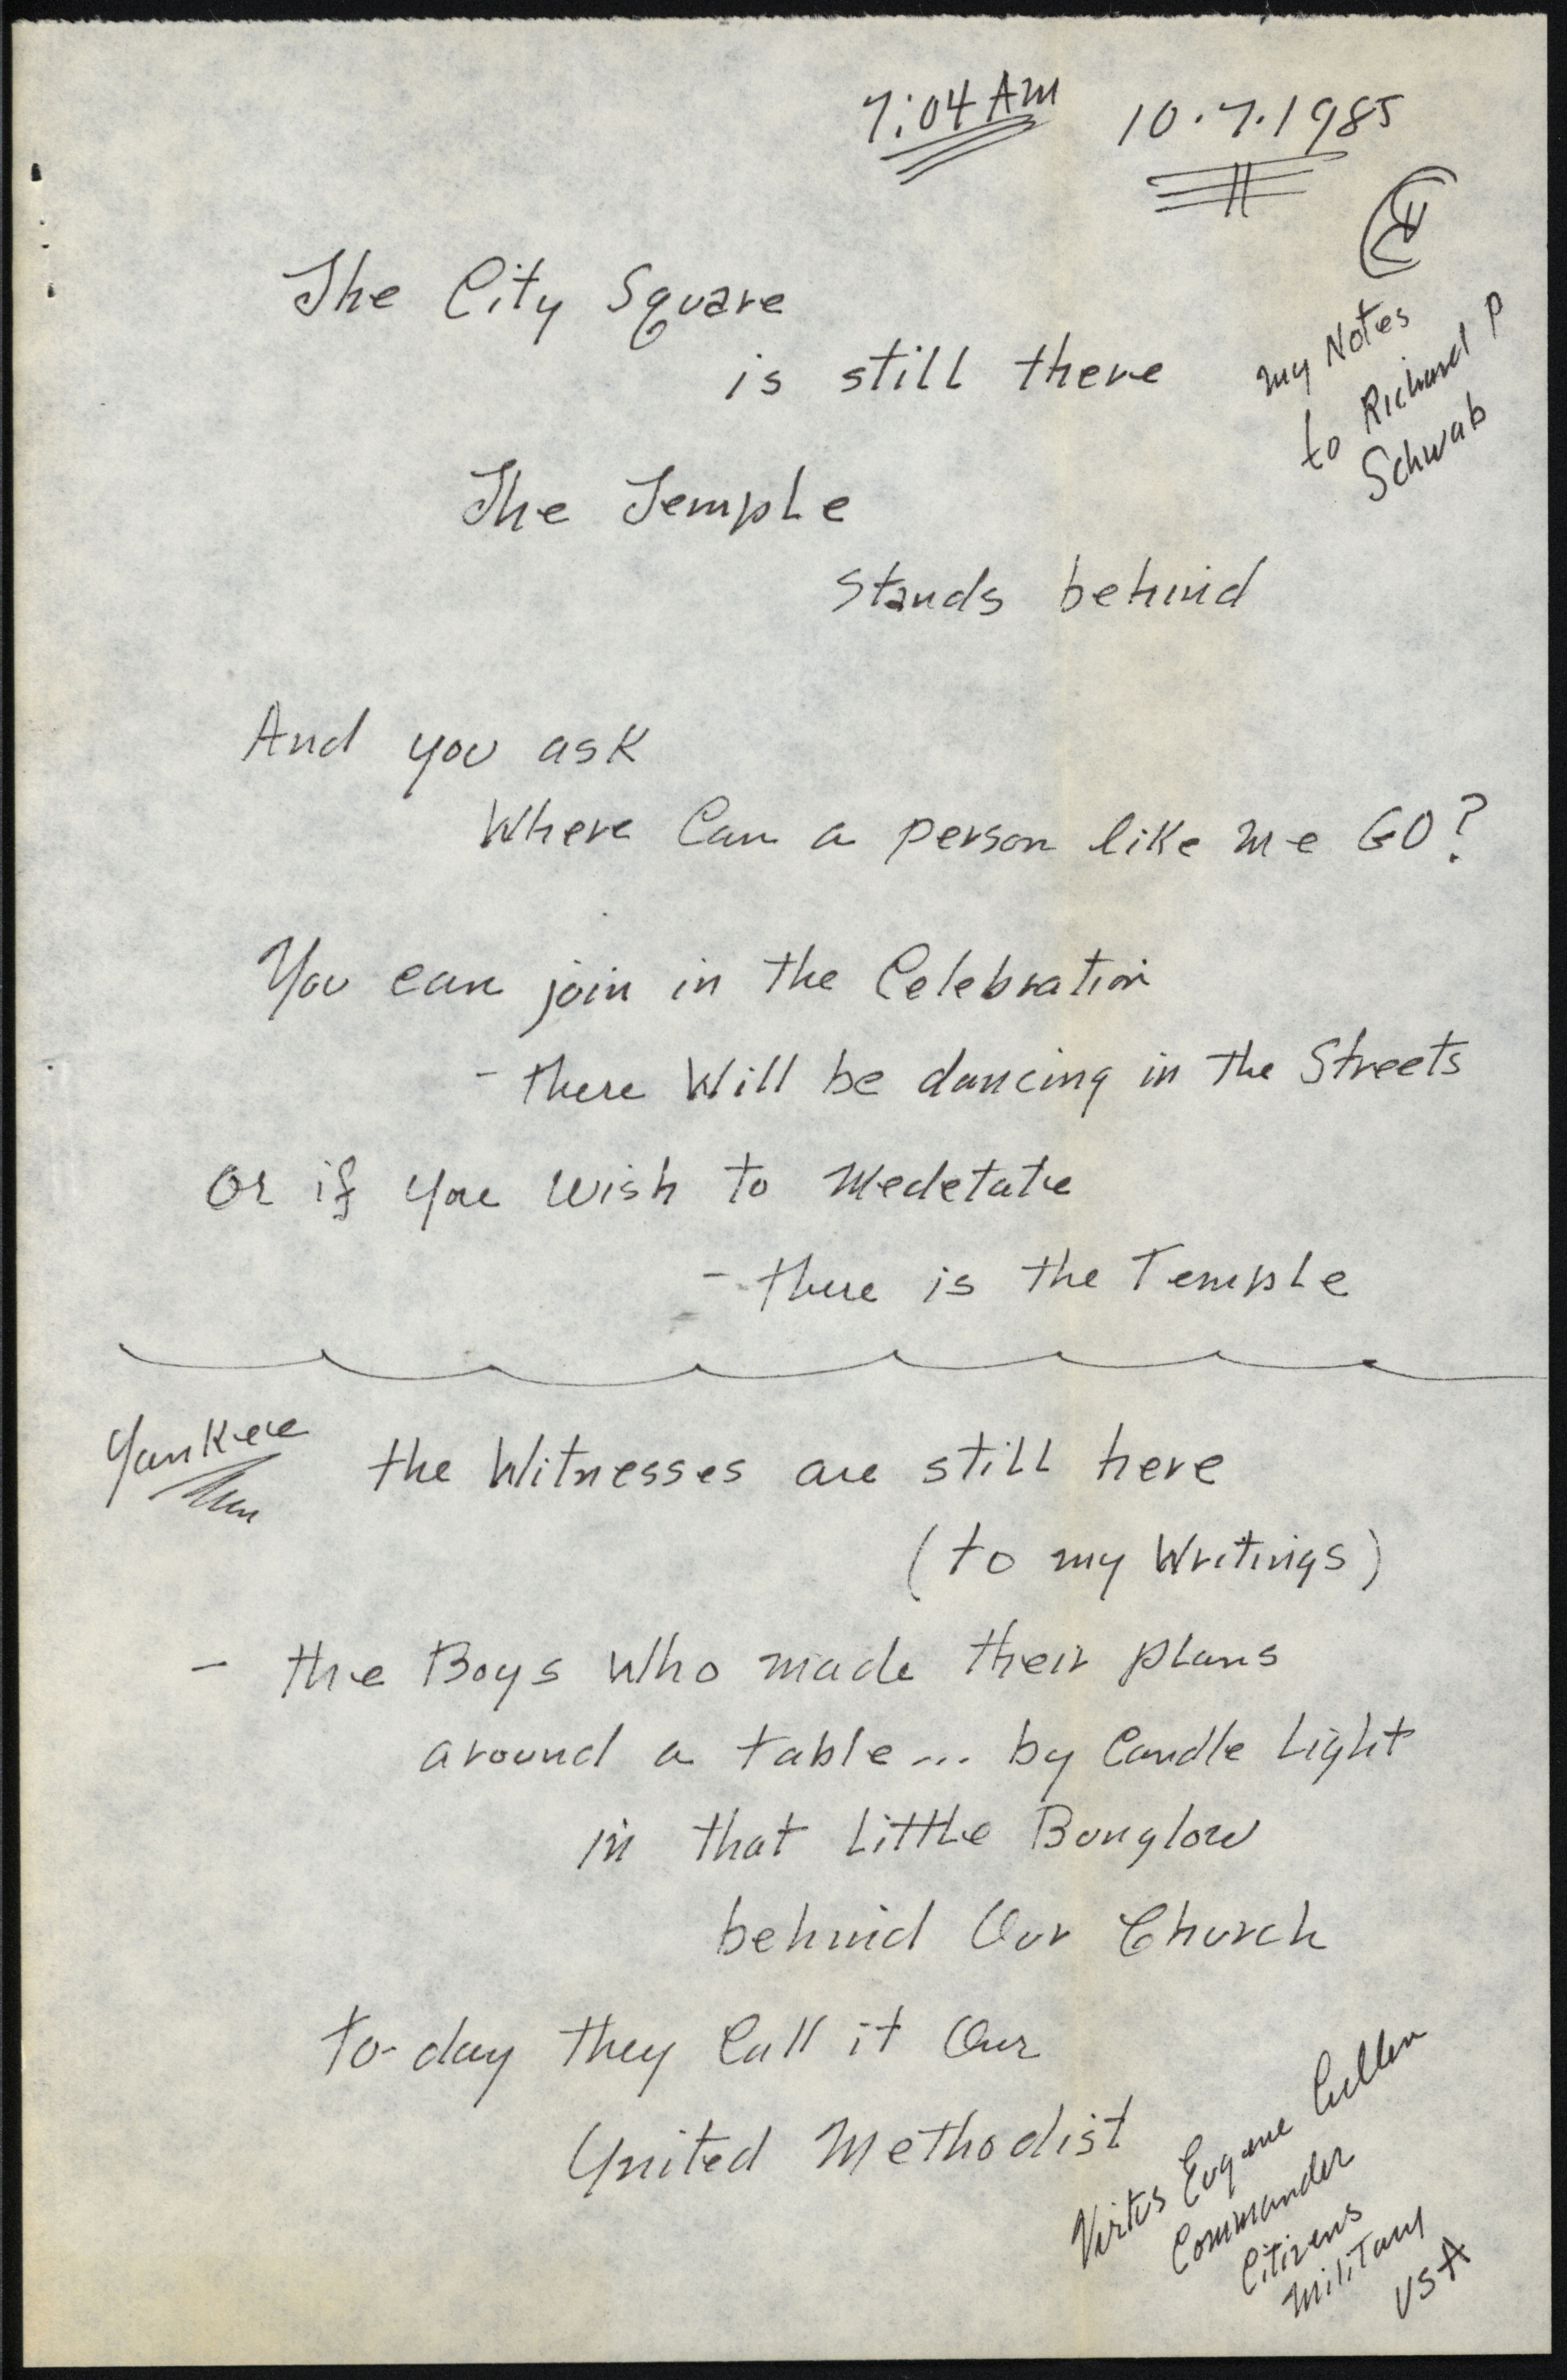 7:04 AM 10.7.1985
My Notes
to Richard P
Schwab
The City Square
is still there
The Temple
Stands behind
And you ask
Where Can a person like me GO?
You can join in the Celebration
- there Will be dancing in the Streets
Or if you Wish to Medetate
- there is the Temple
Yankee
the Witnesses are still here
(to my Writings)
- the Boys Who made their plans
around a table... by Candle Light
in that Little Bunglow
behind Our Church
to-day they Call it Our
United Methodist
Virtus Eugene Cullen
Commander
Citizens
Military
USA